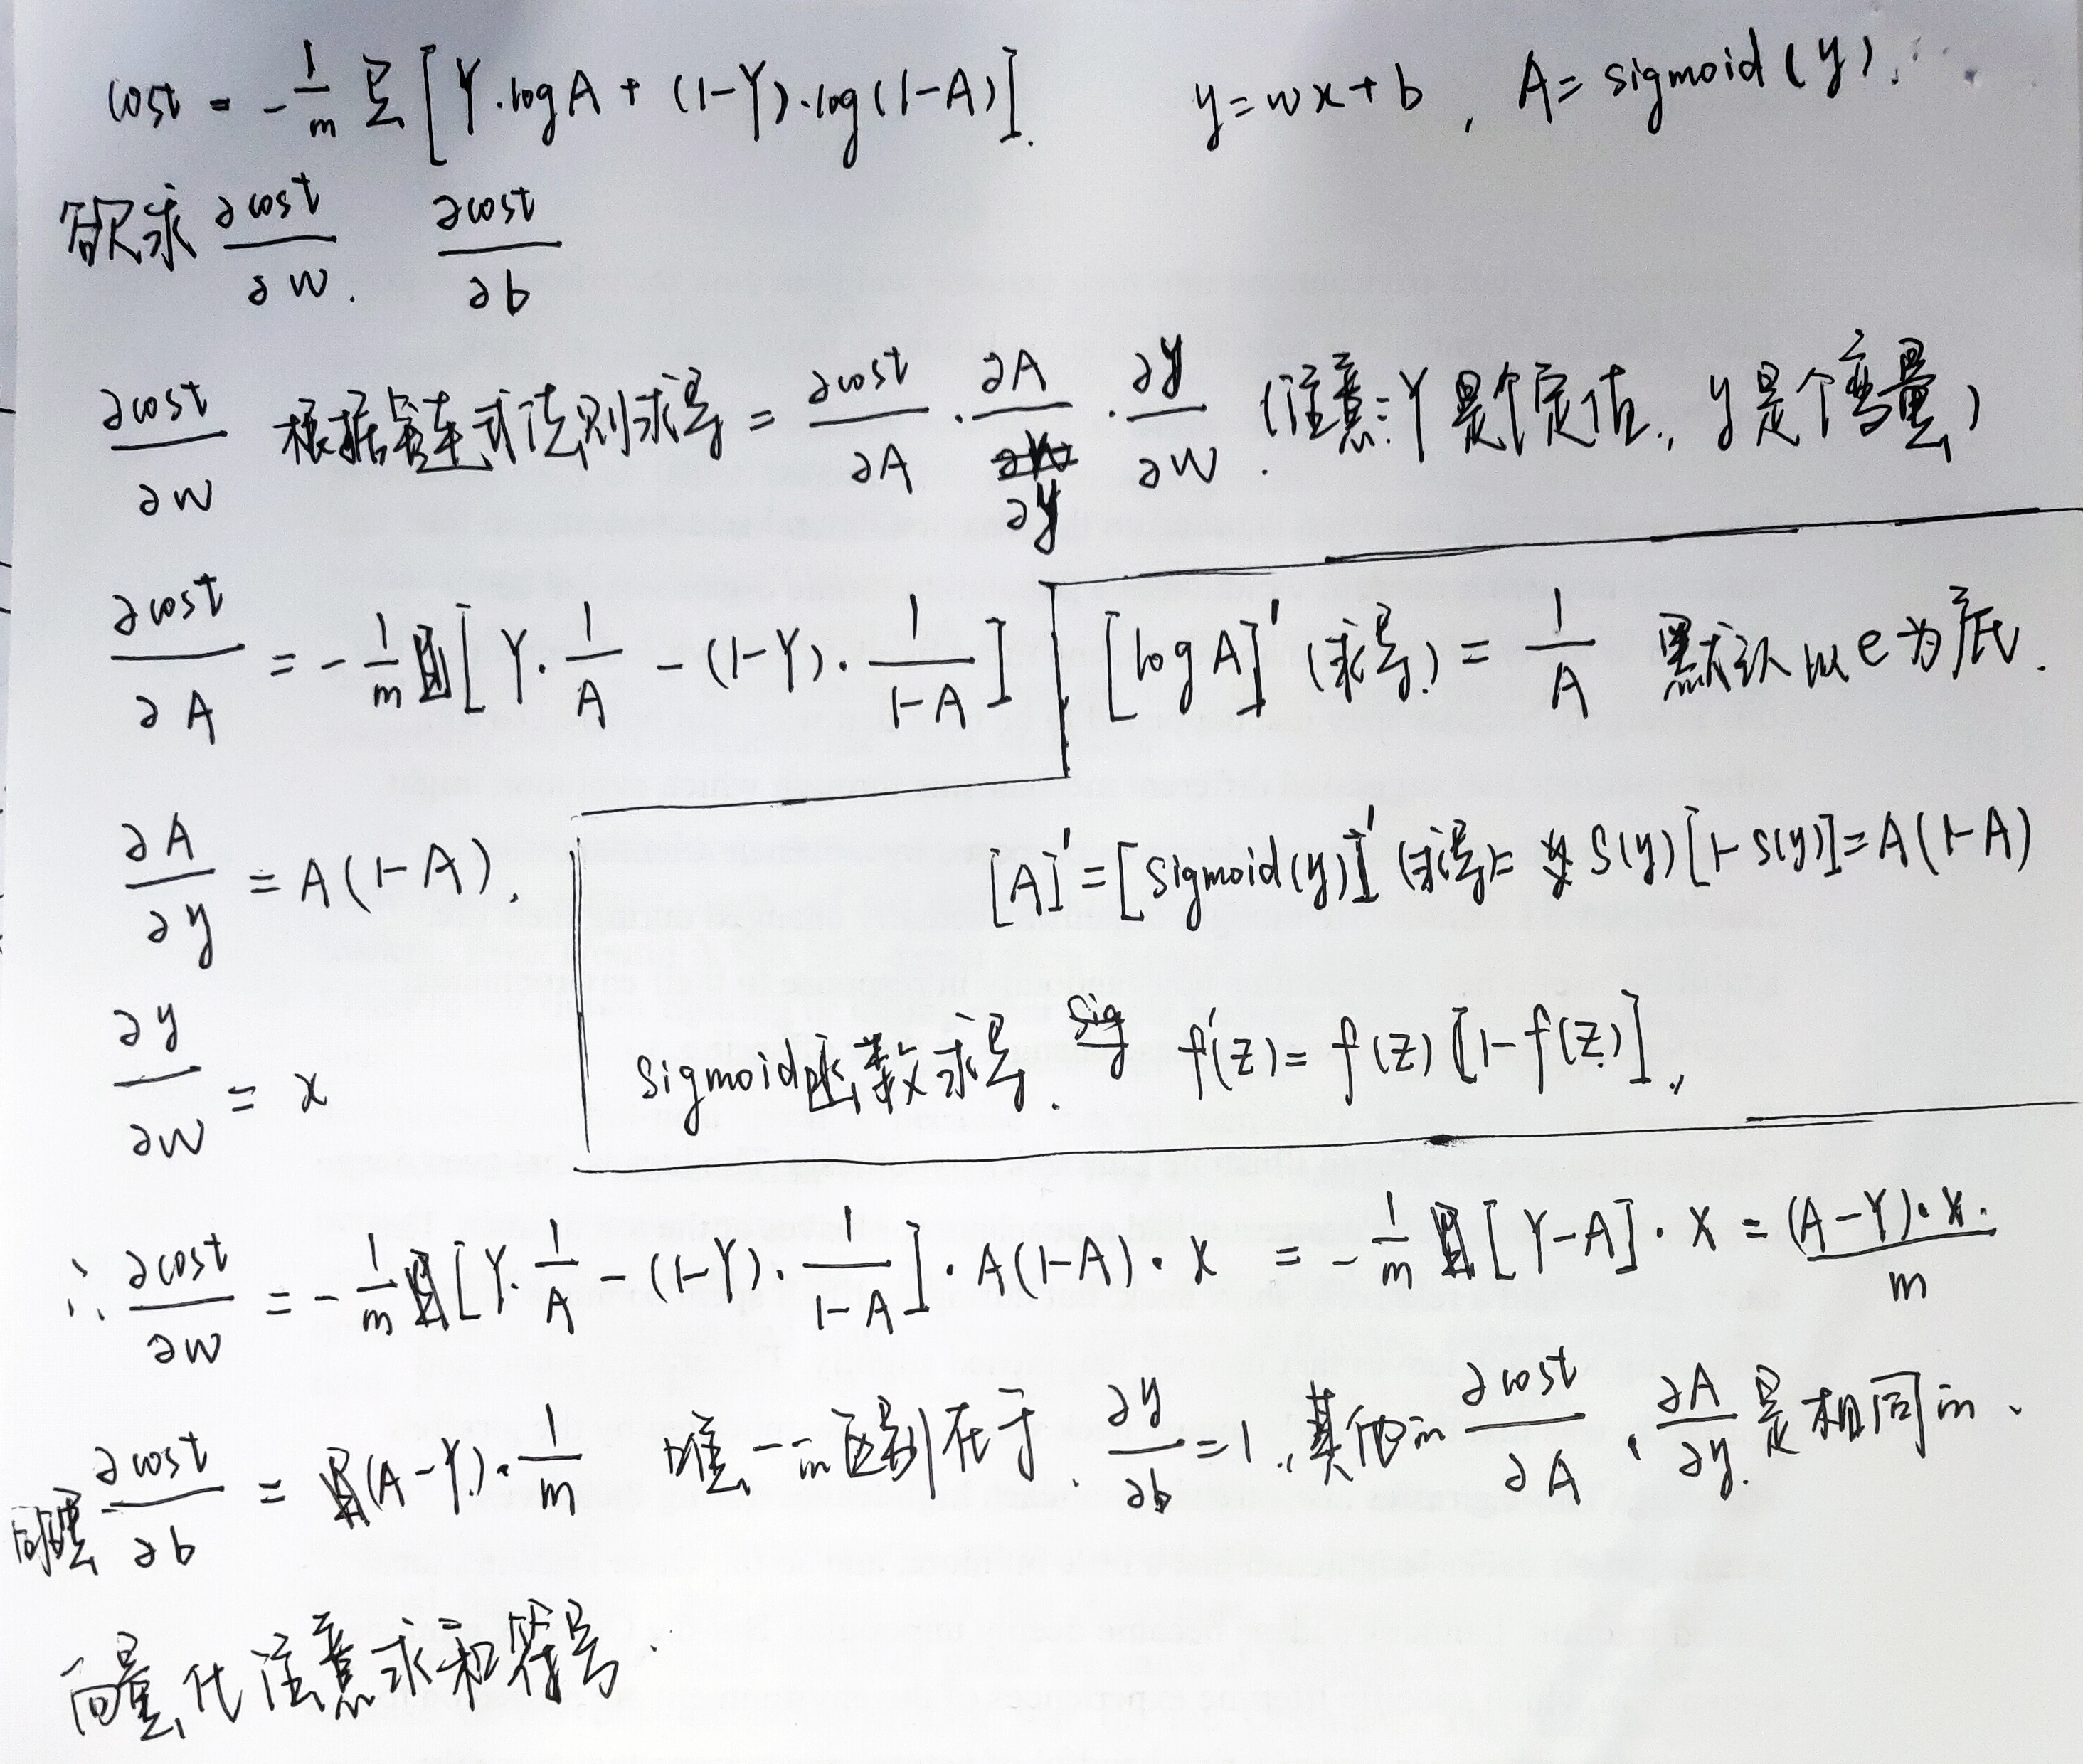 cost = -1/m Σ [Y·logA + (1-Y)·log(1-A)]. y=wx+b, A=sigmoid(y).
欲求 ∂cost/∂w. ∂cost/∂b
∂cost/∂w 根据链式法则求导 = ∂cost/∂A · ∂A/∂y · ∂y/∂w. (注意:Y是个定值, y是个变量)
∂cost/∂A = -1/m [Y·1/A - (1-Y)·1/(1-A)] [logA]' (求导) = 1/A 默认以e为底.
∂A/∂y = A(1-A). [A]' = [sigmoid(y)]' (求导) = S(y)[1-S(y)] = A(1-A)
∂y/∂w = x sigmoid函数求导. f'(z) = f(z)[1-f(z)].
∴ ∂cost/∂w = -1/m [Y·1/A - (1-Y)·1/(1-A)]·A(1-A)·X = -1/m [Y-A]·X = (A-Y)·X./m
同理 ∂cost/∂b = (A-Y)·1/m 唯一的区别在于. ∂y/∂b = 1, 其他的 ∂cost/∂A, ∂A/∂y. 是相同的.
向量化注意求和符号.